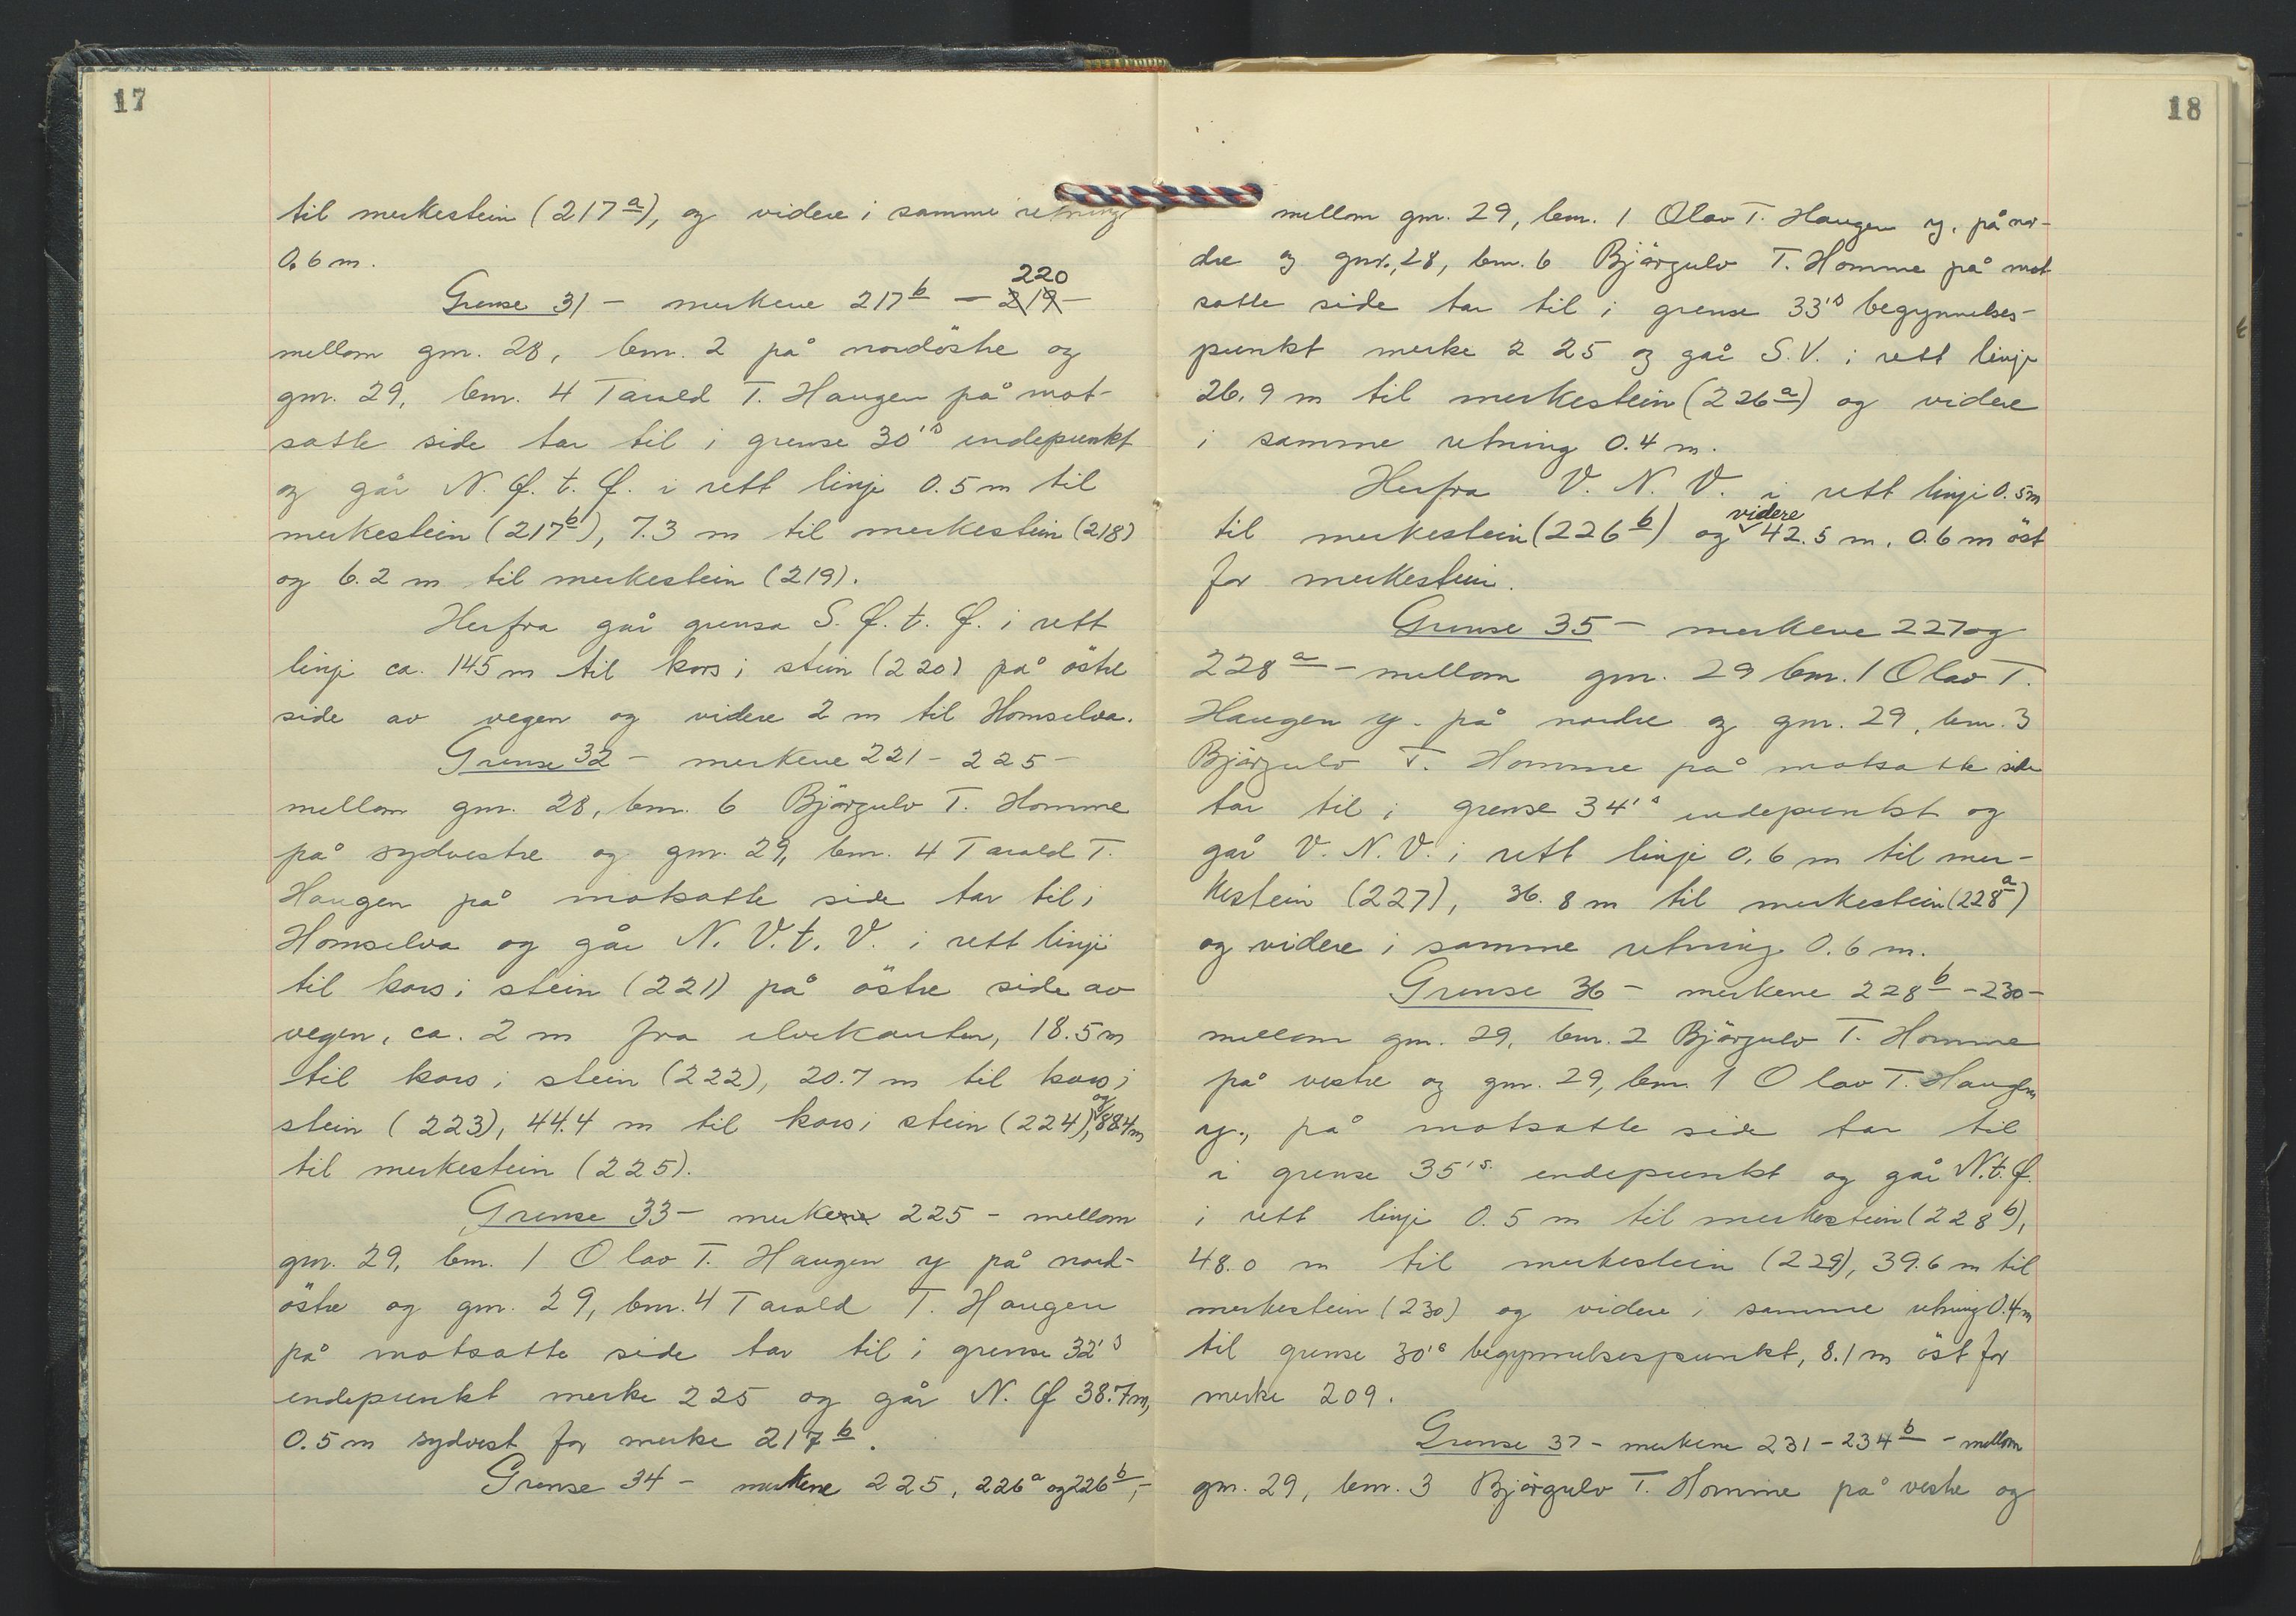 17
til merkestein (217a), og videre i samme retning
0.6 m.
Grense 31 - merkene 217b - 219 220 -
mellom gnr. 28, bnr. 2 på nordöstre og
gnr. 29, bnr. 4 Tarald T. Haugen på mot-
satte side tar til i grense 30's endepunkt
og går N. Ø. t. Ø. i rett linje 0.5 m til
merkestein (217b), 7.3 m til merkestein (218)
og 6.2 m til merkestein (219).
Herfra går grensa S. Ø. t. Ø. i rett
linje ca. 145 m til kors i stein (220) på östre
side av vegen og videre 2 m til Homselva.
Grense 32 - merkene 221 - 225 -
mellom gnr. 28, bnr. 6 Björgulv T. Homme
på sydvestre og gnr. 29, bnr. 4 Tarald T.
Haugen på motsatte side tar til i
Homselva og går N. V. t. V. i rett linje
til kors i stein (221) på östre side av
vegen, ca. 2 m fra elvekanten, 18.5 m
til kors i stein (222), 20.7 m til kors i
stein (223), 44.4 m til kors i stein (224), og 88.4 m
til merkestein (225).
Grense 33 - merkene 225 - mellom
gnr. 29, bnr. 1 Olav T. Haugen y på nord-
östre og gnr. 29, bnr. 4 Tarald T. Haugen
på motsatte side tar til i grense 32's
endepunkt merke 225 og går N. Ø 38.7 m,
0.5 m sydvest for merke 217b.
Grense 34 - merkene 225, 226a og 226b, -
18
mellom gnr. 29, bnr. 1 Olav T. Haugen y, på nor-
dre og gnr. 28, bnr. 6 Björgulv T. Homme på mot
satte side tar til i grense 33's begynnelses-
punkt merke 225 og går S. V. i rett linje
26.9 m til merkestein (226a) og videre
i samme retning 0.4 m.
Herfra V. N. V. i rett linje 0.5 m
til merkestein (226b) og videre 42.5 m, 0.6 m öst
for merkestein.
Grense 35 - merkene 227 og
228a - mellom gnr. 29 bnr. 1 Olav T.
Haugen y. på nordre og gnr. 29, bnr. 3
Björgulv T. Homme på motsatte side
tar til i grense 34's endepunkt og
går V. N. V. i rett linje 0.6 m til mer-
kestein (227), 36.8 m til merkestein (228a)
og videre i samme retning 0.6 m.
Grense 36 - merkene 228b - 230 -
mellom gnr. 29, bnr. 2 Björgulv T. Homme
på vestre og gnr. 29, bnr. 1 Olav T. Haugen
y., på motsatte side tar til
i grense 35's endepunkt og går N. t. Ø.
i rett linje 0.5 m til merkestein (228b),
48.0 m til merkestein (229), 39.6 m til
merkestein (230) og videre i samme retning 0.4 m
til grense 30's begynnelsespunkt, 8.1 m öst for
merke 209.
Grense 37 - merkene 231 - 234b - mellom
gnr. 29, bnr. 3 Björgulv T. Homme på vestre og